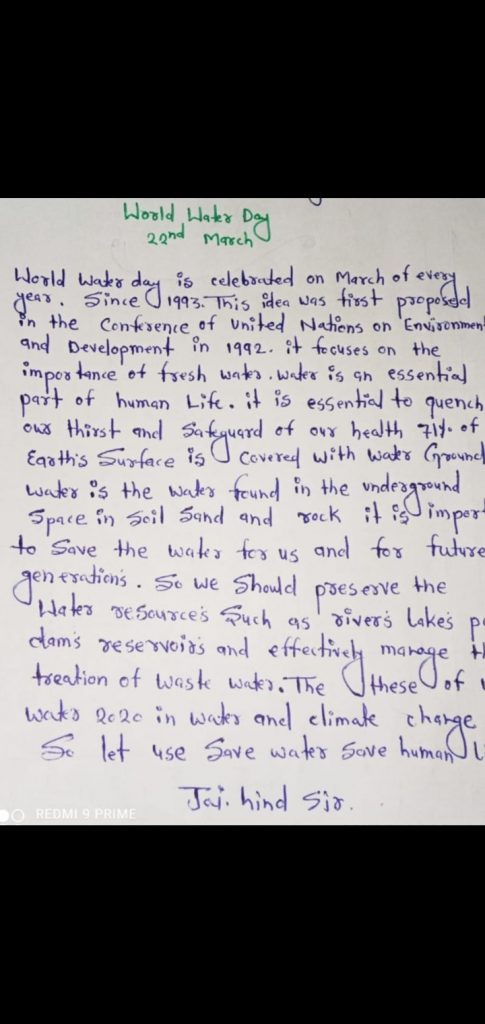 World Water Day
22nd March
World Water day is celebrated on March of every
year. Since 1993. This idea was first proposed
in the Conference of United Nations on Environmen
and Development in 1992. it focuses on the
importance of fresh water. water is an essential
part of human Life. it is essential to quench
our thirst and Safeguard of our health 71% of
Earth's Surface is Covered with Water Ground
water is the water found in the underground
Space in Soil Sand and rock it is impor
to Save the water for us and for future
generation's. So we Should preserve the
Water resource's Such as river's Lake's p
dam's reservoirs and effectively manage th
treation of waste water. The these of
water 2020 in water and climate change
So let use Save water Save human L
Jai. hind Sir.
REDMI 9 PRIME